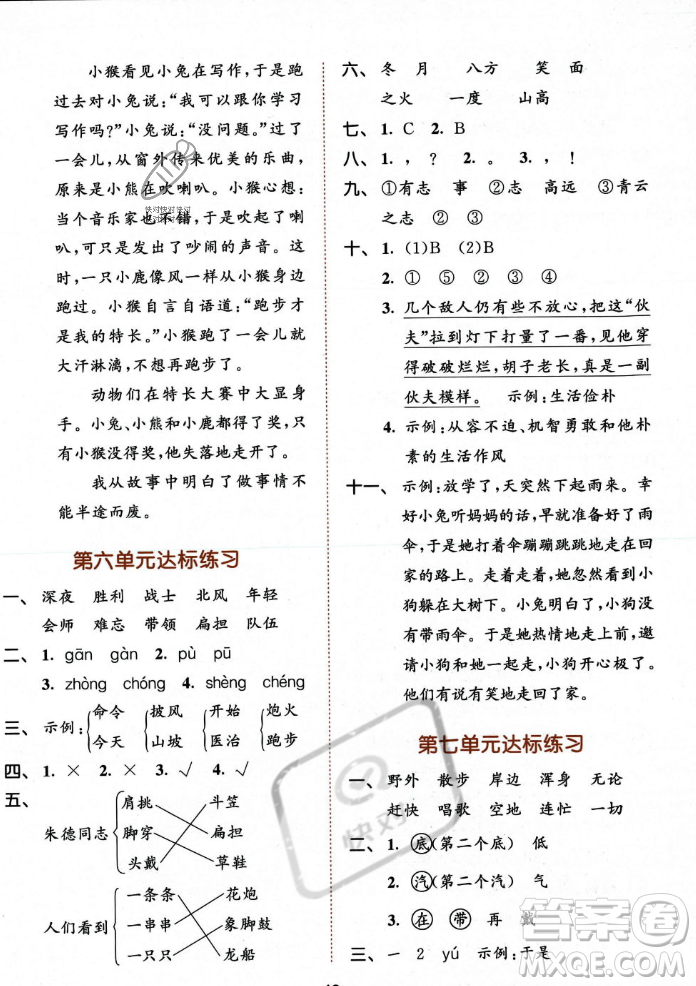 小猴看见小兔在写作,于是跑
过去对小兔说:“我可以跟你学习
写作吗?”小兔说:“没问题。”过了
一会儿,从窗外传来优美的乐曲,
原来是小熊在吹喇叭。小猴心想:
当个音乐家也不错,于是吹起了喇
叭,可是发出了吵闹的声音。这时,
一只小鹿像风一样从小猴身边
跑过。小猴自言自语道:“跑步才
是我的特长。”小猴跑了一会儿就
大汗淋漓,于是放弃了跑步。
动物们在特长大赛中大显身
手。小兔、小熊和小鹿都得了奖,
只有小猴没得奖,他失落地走开了。
我从故事中明白了做事情不
能半途而废。
第六单元达标练习
一、 深夜 胜利 战士 北风 年轻
会师 难忘 带领 扁担 队伍
二、 1. gān gàn 2. pù pū
3. zhòng chóng 4. shèng chéng
三、 示例: 命令 今天 披风 山坡 开始 医治 炮火 跑步
四、 1. × 2. × 3. √ 4. √
五、
朱德同志 肩挑 脚穿 头戴 斗笠 扁担 草鞋
人们看到 一条条 一串串 一只只 花炮 象脚鼓 龙船
六、 冬 月 八方 笑 面
之火 一度 山高
七、 1. C 2. B
八、 1. , ? 2. 。 。 3. , !
九、 ①有志 事 ②志 高远 ③青云
之志 ② ③
十、 1. (1)B (2)B
2. ① ⑤ ② ③ ④
3. 几个敌人仍有些不放心,把这“伙
夫”拉到灯下打量了一番,见他穿
得破破烂烂,胡子老长,真是一副
伙夫模样。 示例:生活俭朴
4. 示例:从容不迫、机智勇敢和他朴
素的生活作风
十一、 示例:放学了,天突然下起雨来。幸
好小兔听妈妈的话,早就准备好了雨
伞,于是她打着伞蹦蹦跳跳地走在回
家的路上。走着走着,她忽然发现小
狗躲在大树下。小兔明白了,小狗没
有带雨伞。于是她热情地走上前,邀
请小狗和她一起回家,小狗开心极了。
他们有说有笑地走回了家。
第七单元达标练习
一、 野外 散步 岸边 浑身 无论
赶快 唱歌 空地 连忙 一切
二、 1. 底(第二个底) 低
2. 汽(第二个汽) 气
3. 在 带 再 戴
三、 一 2 yú 示例:于是
快对快对快对
快对
答案卷
MXQE.COM